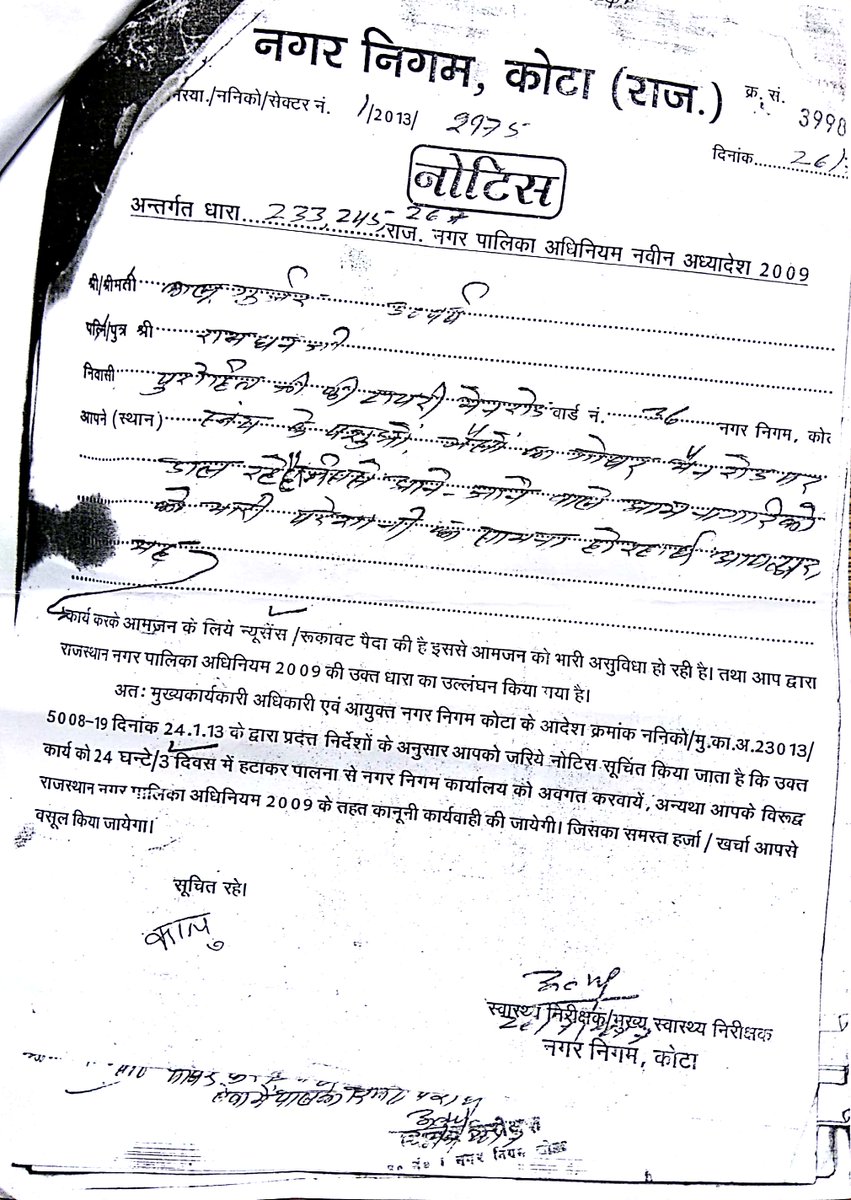 नगर निगम, कोटा (राज.)
क्र. सं. 3990
/ननिको/सेक्टर नं. 1/2013/ 2975
दिनांक......26/
नोटिस
अन्तर्गत धारा 233, 245, 267 राज. नगर पालिका अधिनियम नवीन अध्यादेश 2009
श्री/श्रीमती कालू गुर्जर
पत्नि/पुत्र श्री रामधन जी
निवासी पुरोहित जी की टापरी मेन रोड वार्ड नं. 36 नगर निगम, कोटा
आपने (स्थान) के पशुओं, भैंसों का गोबर मैन रोड पर
डाल रहे हैं जिससे आने-जाने वाले आम नागरिको
को भारी परेशानी का सामना हो रहा है
यह
कार्य करके आमजन के लिये न्यूसेंस /रूकावट पैदा की है इससे आमजन को भारी असुविधा हो रही है। तथा आप द्वारा
राजस्थान नगर पालिका अधिनियम 2009 की उक्त धारा का उल्लंघन किया गया है।
अतः मुख्यकार्यकारी अधिकारी एवं आयुक्त नगर निगम कोटा के आदेश क्रमांक ननिको/मु.का.अ.23013/
5008-19 दिनांक 24.1.13 के द्वारा प्रदत्त निर्देशों के अनुसार आपको जरिये नोटिस सूचित किया जाता है कि उक्त
कार्य को 24 घन्टे/3 दिवस में हटाकर पालना से नगर निगम कार्यालय को अवगत करवायें, अन्यथा आपके विरूद्ध
राजस्थान नगर पालिका अधिनियम 2009 के तहत कानूनी कार्यवाही की जायेगी। जिसका समस्त हर्जा / खर्चा आपसे
वसूल किया जायेगा।
सूचित रहे।
कालू
स्वास्थ्य निरीक्षक/मुख्य स्वास्थ्य निरीक्षक
नगर निगम, कोटा
नगर निगम कोटा